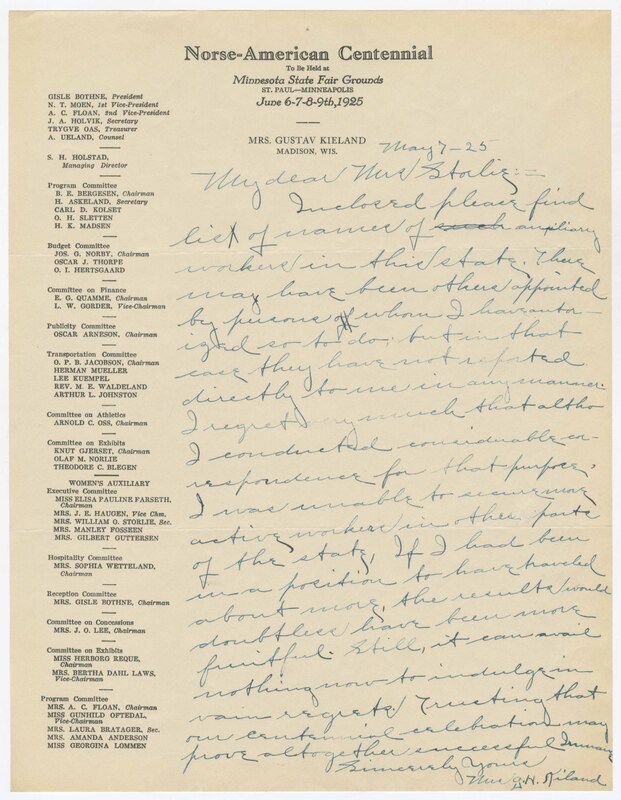 Norse-American Centennial
To Be Held at
Minnesota State Fair Grounds
ST. PAUL—MINNEAPOLIS
June 6-7-8-9th, 1925
MRS. GUSTAV KIELAND
MADISON, WIS.
GISLE BOTHNE, President
N. T. MOEN, 1st Vice-President
A. C. FLOAN, 2nd Vice-President
J. A. HOLVIK, Secretary
TRYGVE OAS, Treasurer
A. UELAND, Counsel
S. H. HOLSTAD,
Managing Director
Program Committee
B. E. BERGESEN, Chairman
H. ASKELAND, Secretary
CARL D. KOLSET
O. H. SLETTEN
H. K. MADSEN
Budget Committee
JOS. G. NORBY, Chairman
OSCAR J. THORPE
O. I. HERTSGAARD
Committee on Finance
E. G. QUAMME, Chairman
L. W. GORDER, Vice-Chairman
Publicity Committee
OSCAR ARNESON, Chairman
Transportation Committee
O. P. B. JACOBSON, Chairman
HERMAN MUELLER
LEE KUEMPEL
REV. M. E. WALDELAND
ARTHUR L. JOHNSTON
Committee on Athletics
ARNOLD C. OSS, Chairman
Committee on Exhibits
KNUT GJERSET, Chairman
OLAF M. NORLIE
THEODORE C. BLEGEN
WOMEN'S AUXILIARY
Executive Committee
MISS ELISA PAULINE FARSETH,
Chairman
MRS. J. E. HAUGEN, Vice Chm.
MRS. WILLIAM O. STORLIE, Sec.
MRS. MANLEY FOSSEEN
MRS. GILBERT GUTTERSEN
Hospitality Committee
MRS. SOPHIA WETTELAND,
Chairman
Reception Committee
MRS. GISLE BOTHNE, Chairman
Committee on Concessions
MRS. J. O. LEE, Chairman
Committee on Exhibits
MISS HERBORG REQUE,
Chairman
MRS. BERTHA DAHL LAWS,
Vice-Chairman
Program Committee
MRS. A. C. FLOAN, Chairman
MISS GUNHILD OFTEDAL,
Vice-Chairman
MRS. LAURA BRATAGER, Sec.
MRS. AMANDA ANDERSON
MISS GEORGINA LOMMEN
May 7-25
My dear Mrs Storlie:=
Inclosed please find
list of names of such auxiliary
workers in this state. There
may have been others appointed
by persons of whom I have autor-
ized so to do; but in that
case they have not reported
directly to me in any manner.
I regret very much that altho
I conducted considerable co-
respondence for that purpose,
I was unable to secure more
active workers in other parts
of the state. If I had been
in a position to have traveled
about more, the results would
doubtless have been more
fruitful. Still, it can avail
nothing now to indulge in
vain regrets. Trusting that
our centennial celebration may
prove altogether successful I remain
Sincerely Yours
Mrs G. N. Kiland